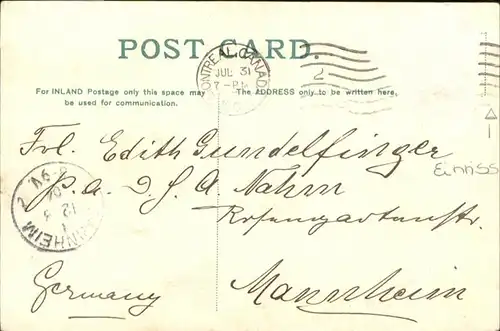 POST CARD.
MONTREAL, CANADA
JUL 31
7-PM
For INLAND Postage only this space may
be used for communication.
The ADDRESS only to be written here,
Frl. Edith Gundelfinger
p. a. D. S. A. Nahm
Rosengartenstr.
Mannheim
Germany
MANNHEIM
Einriss